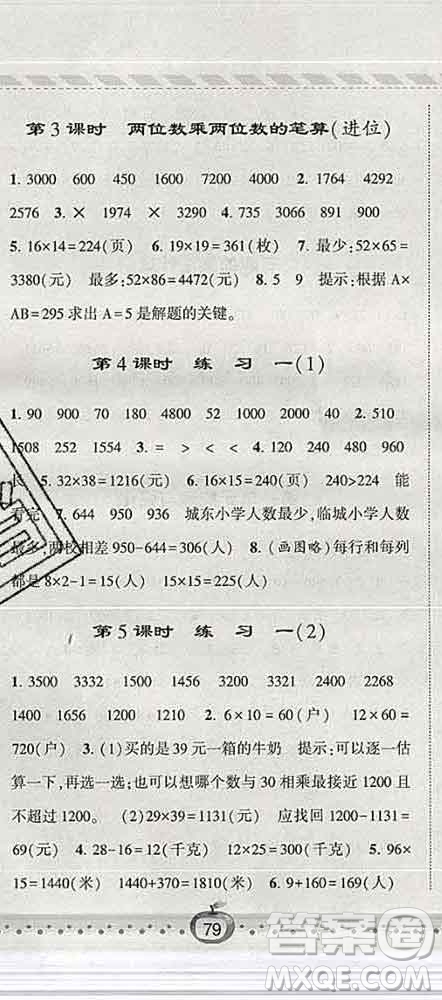 第3课时　两位数乘两位数的笔算(进位)
1. 3000　600　450　1600　7200　4000　2. 1764　4292
2576　3. ×　1974　×　3290　4. 735　3066　891　900
5. 16×14=224(页)　6. 19×19=361(枚)　7. 最少:52×65=
3380(元)　最多:52×86=4472(元)　8. 5　9　提示:根据 A×
AB=295 求出 A=5 是解题的关键。
第4课时　练　习　一(1)
1. 90　900　70　180　4800　52　1000　2000　40　2. 510
1508　252　1554　3. =　>　<　<　4. 120　240　480　960
5. 32×38=1216(元)　6. 16×15=240(页)　240>224　能
看完　7. 644　950　936　城东小学人数最少,临城小学人数
最多,两校相差 950-644=306(人)　8. (画图略)每行和每列
都是 8×2-1=15(人)　15×15=225(人)
第5课时　练　习　一(2)
1. 3500　3332　1500　1456　3200　2400　2268
1400　1656　1210　2000　2. 6×10=60(户)　12×60=
720(户)　3. (1)买的是 39 元一箱的牛奶　提示:可以逐一估
算一下,再选一选;也可以想哪个数与 30 相乘最接近 1200 且
不超过 1200。　(2)29×39=1131(元)　应找回 1200-1131=
69(元)　4. 28-16=12(千克)　12×21=252(千克)　5. 96×
15=1440(米)　1440+370=1810(米)　6. 9+160=169(人)
79
答案圈
MXQE.COM